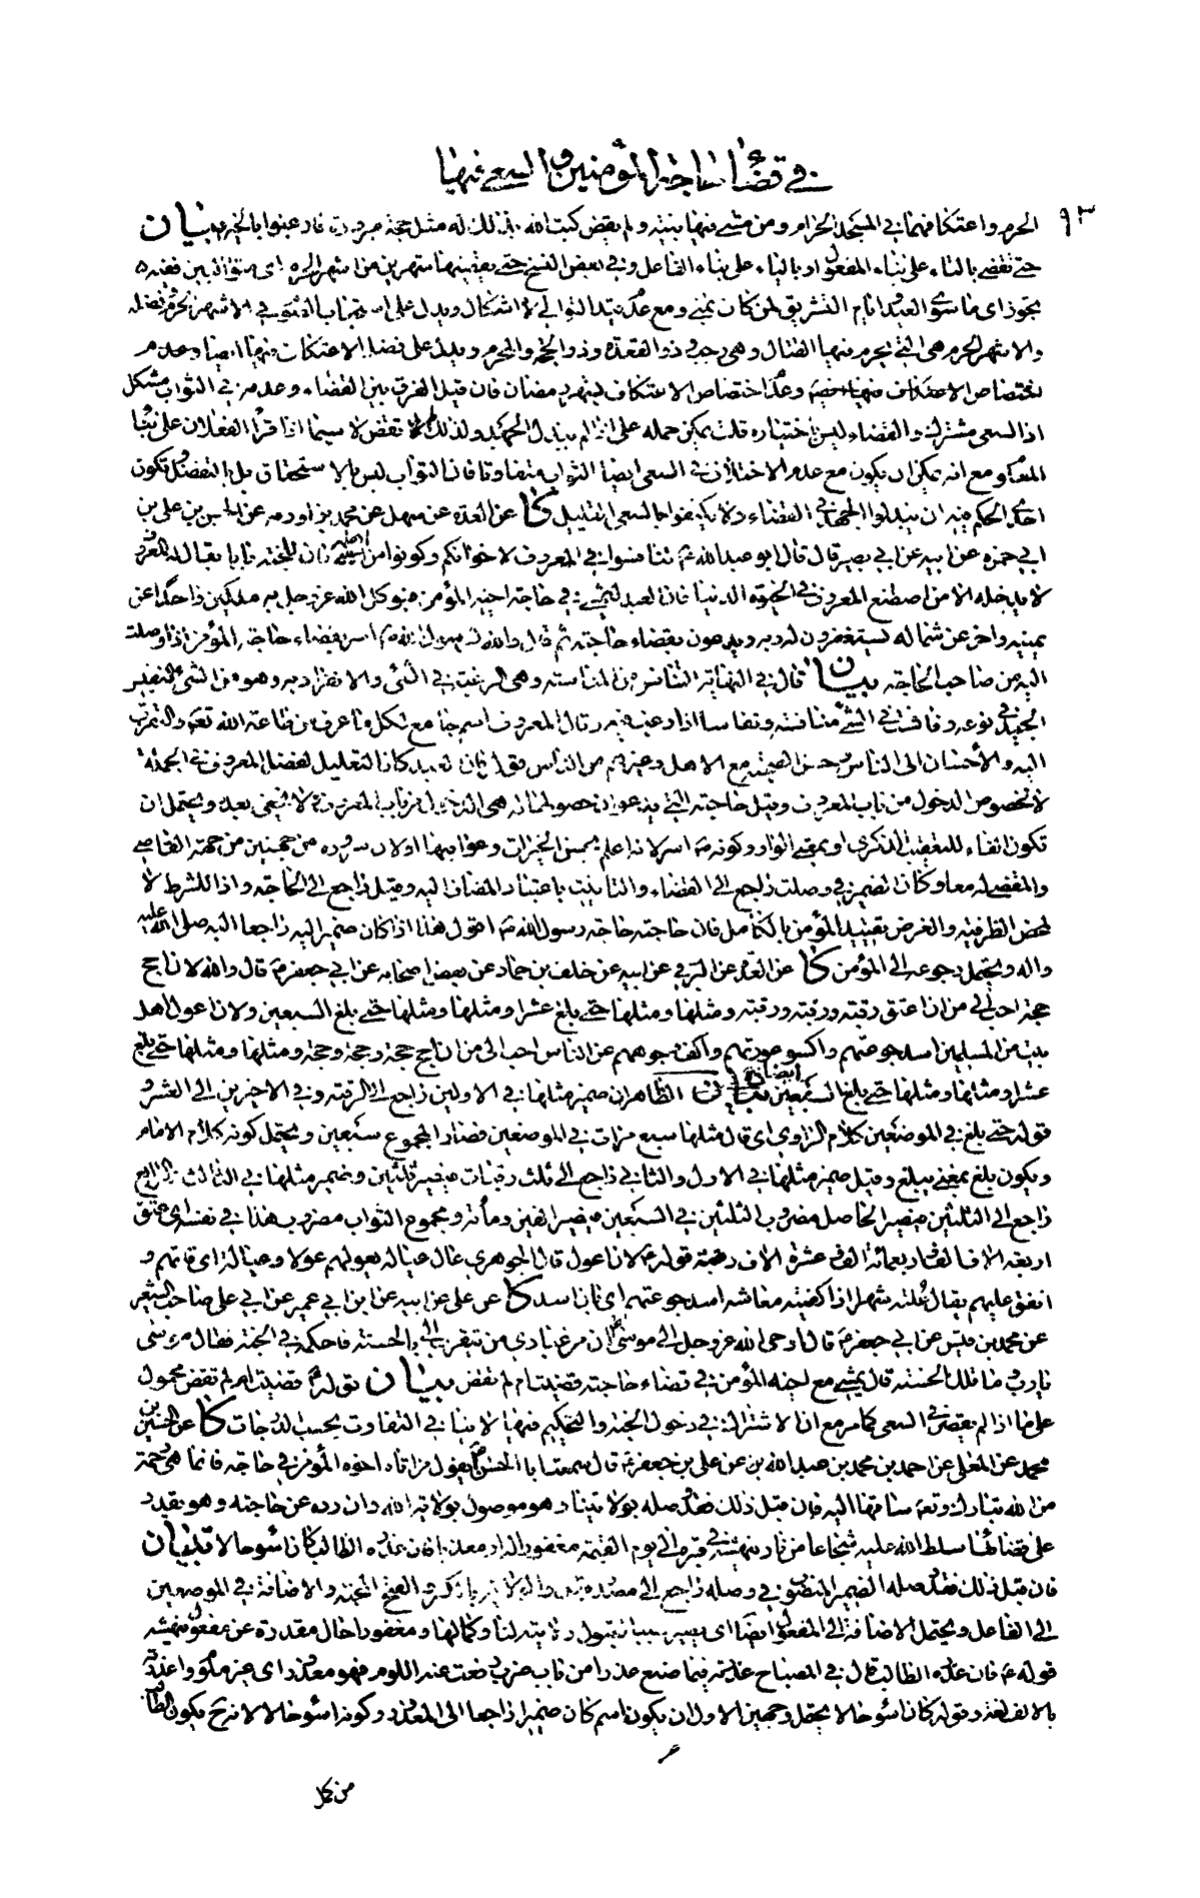 في قضاء حاجة المؤمنين والسعي فيها
٩٣
الحرم واعتكافهما في المسجد الحرام ومن مشى فيها بنية ولم يقض كتب الله بذلك له مثل حجة مبرورة فارغبوا بالخير بيان
حتى تقضى بالتاء على بناء المفعول او بالياء على بناء الفاعل وفي بعض النسخ حتى يقضيها شهرين من اشهر الحرم اي متواليين ففيه
تجوز اي ما سوى العيد وايام التشريق لمن كان بمنى ومع عدم قيد التوالي لا اشكال ويدل على استحباب الصوم في الاشهر الحرم وفضله
والاشهر الحرم هي التي يحرم فيها القتال وهي رجب وذو القعدة وذو الحجة والمحرم ويدل على فضل الاعتكاف فيها ايضا وعدم
اختصاص الاعتكاف وعدم اختصاص الاعتكاف بشهر رمضان فان قيل الفرق بين القضاء وعدمه في الثواب مشكل
اذ السعي مشترك والقضاء ليس باختياره قلت يمكن حمله على اذا لم يبذل الجهد ولذلك لم تقض لا سيما اذا قرأ الفعلان على بناء
المعلوم مع انه يمكن ان يكون مع عدم الاختلاف في السعي ايضا الثواب متفاوتا فان الثواب ليس بالاستحقاق بل بالتفضل وتكون
احدى الحكم فيه ان يبذلوا الجهد في القضاء ولا يكتفوا بالسعي القليل كا عن العدة عن سهل عن محمد بن اورمه عن الحسن بن علي بن
ابي حمزه عن ابيه عن ابي بصير قال قال ابو عبد الله ع تنافسوا في المعروف لاخوانكم وكونوا من اهله فان للجنة بابا يقال له المعروف
لا يدخله الا من اصطنع المعروف في الحيوة الدنيا فان العبد ليمشي في حاجة اخيه المؤمن فيوكل الله عز وجل به ملكين واحدا عن
يمينه واخر عن شماله يستغفرون له ربه ويدعون بقضاء حاجته ثم قال والله لرسول الله ص اسر بقضاء حاجة المؤمن اذا وصلت
اليه من صاحب الحاجة بيان قال في النهاية التنافس من المنافسة وهي الرغبة في الشئ والانفراد به وهو من الشئ النفيس
الجيد في نوعه ونافست في الشئ منافسة ونفاسا اذا رغبت فيه وقال المعروف اسم جامع لكل ما عرف من طاعة الله تعالى والتقرب
اليه والاحسان الى الناس وحسن الصحبة مع الاهل وغيرهم من الناس قوله فان العبد كان التعليل لفضل المعروف في الجملة
لا لخصوص الدخول من باب المعروف وقيل حاجته التي يدعوان حصولها له هي الدخول من باب المعروف ولا يخفى بعده ويحتمل ان
تكون الفاء للتعقيب الذكري او بمعنى الواو وكونه ص اسر لانه اعلم بحسن الخيرات وعواقبها او لان سروره من جهتين من جهة القاضي
والمقضي له معا وكان الضمير في وصلت راجع الى القضاء والتأنيث باعتبار المضاف اليه وقيل راجع الى الحاجة واذا للشرط لا
لمحض الظرفية والغرض تقييد المؤمن بالكامل فان حاجته حاجة رسول الله ص اقول هذا اذا كان ضمير اليه راجعا اليه صلى الله عليه
واله ويحتمل رجوعه الى المؤمن كا عن العدة عن البرقي عن ابيه عن خلف بن حماد عن بعض اصحابه عن ابي جعفر ع قال والله لان احج
حجة احب الي من ان اعتق رقبة ورقبة ورقبة ومثلها ومثلها حتى بلغ عشرا ومثلها ومثلها حتى بلغ السبعين ولان اعول اهل
بيت من المسلمين اسد جوعتهم واكسو عورتهم واكف وجوههم عن الناس احب الي من ان احج حجة وحجة وحجة ومثلها ومثلها حتى بلغ
عشرا ومثلها ومثلها حتى بلغ السبعين ايضاح الظاهر ان ضمير مثلها في الاولين راجع الى الرقبة وفي الاخرين الى العشر و
قوله حتى بلغ في الموضعين كلام الراوي اي قال مثلها سبع مرات في الموضعين فصار المجموع سبعين ويحتمل كونه كلام الامام
ويكون بلغ بمعنى يبلغ وقيل ضمير مثلها في الاول والثاني راجع الى ثلث رقبات فيصير ثلثين وضمير مثلها في الثالث والرابع
راجع الى الثلثين فيصير الحاصل مضروب الثلثين في السبعين فيصير الفين ومأة ومجموع الثواب مضروب هذا في نفسه اي عتق
اربعة الاف الف واربعمائة الف وعشرة الاف رقبة قوله ع لان اعول قال الجوهري عال عياله يعولهم عولا وعيالة اي قاتهم و
انفق عليهم يقال علته شهرا اذا كفيته معاشه اسد جوعتهم اي بان اسد كا عن علي عن ابيه عن ابن ابي عمير عن ابي علي صاحب الشعير
عن محمد بن قيس عن ابي جعفر ع قال اوحى الله عز وجل الى موسى ع ان من عبادي من يتقرب الي بالحسنة فاحكمه في الجنة فقال موسى
يا رب وما تلك الحسنة قال يمشي مع اخيه المؤمن في قضاء حاجته قضيت ام لم تقض بيان قوله ع قضيت ام لم تقض محمول
على ما اذا لم يقصر في السعي كما مر مع ان الاشتراك في دخول الجنة والتحكيم فيها لا ينافي التفاوت بحسب الدرجات كا عن الحسين بن
محمد عن المعلى عن احمد بن محمد بن عبد الله عن علي بن جعفر ع قال سمعت ابا الحسن ع يقول من اتاه اخوه المؤمن في حاجة فانما هي رحمة
من الله تبارك وتعالى ساقها اليه فان قبل ذلك فقد وصله بولايتنا وهو موصول بولاية الله وان رده عن حاجته وهو يقدر
على قضائها سلط الله عليه شجاعا من نار ينهشه في قبره الى يوم القيمة مغفورا له او معذبا فان عذره الطالب كان اسوء حالا تبيان
فان قبل ذلك فقد وصله الضمير المنصوب في وصله راجع الى مصدر قبل والولاية بالكسر والفتح المحبة والاضافة في الموضعين
الى الفاعل ويحتمل الاضافة الى المفعول ايضا اي يصير سببا لقبول ولايته لنا وكمالها ومغفورا حال مقدرة عن مفعول ينهشه
قوله ع فان عذره الطالب قال في المصباح عذرته فيما صنع عذرا من باب ضرب رفعت عنه اللوم فهو معذور اي غير ملوم واعذرته
بالالف لغة وقوله كان اسوء حالا يحتمل وجهين الاول ان يكون اسم كان ضميرا راجعا الى المعذور وكونه اسوء حالا لانه ح يكون الطالب
من كمل